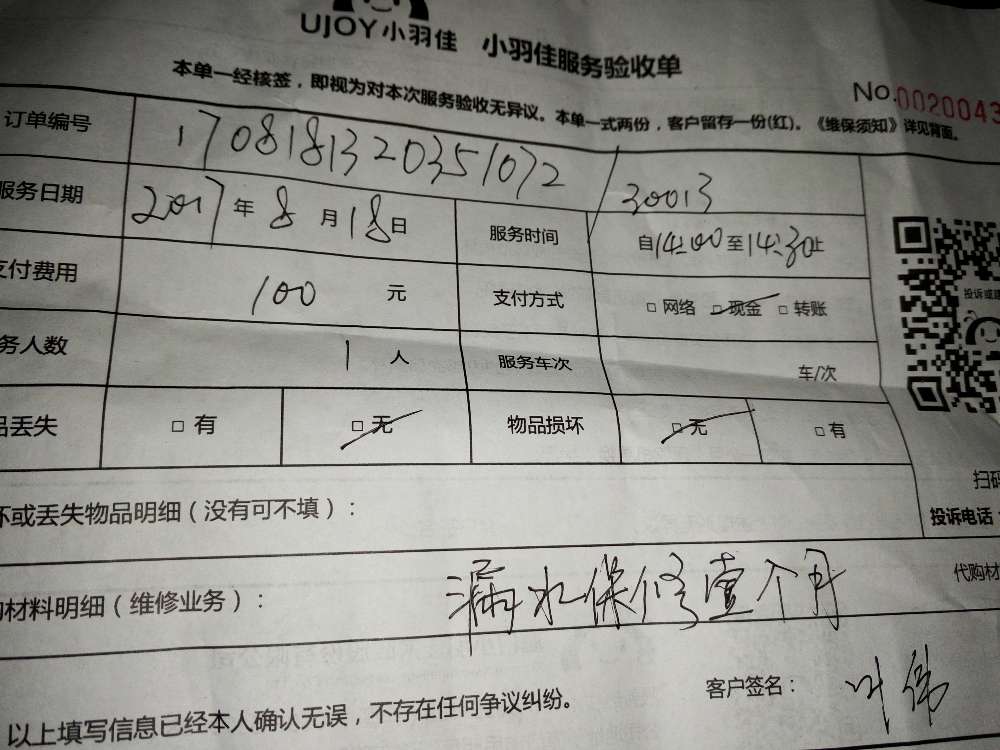 UJOY小羽佳 小羽佳服务验收单
本单一经核签，即视为对本次服务验收无异议。本单一式两份，客户留存一份(红)。《维保须知》详见背面。
No.0020043
订单编号 1708181320351072 / 30013
服务日期 2017年8月18日 服务时间 自14:00至14:30止
支付费用 100 元 支付方式 □网络 □现金 □转账
务人数 1人 服务车次 车/次
品丢失 □有 □无 物品损坏 □无 □有
投诉或建
扫码
坏或丢失物品明细（没有可不填）：
投诉电话：
购材料明细（维修业务）： 漏水保修壹个月
代购材
客户签名： 叶伟
以上填写信息已经本人确认无误，不存在任何争议纠纷。